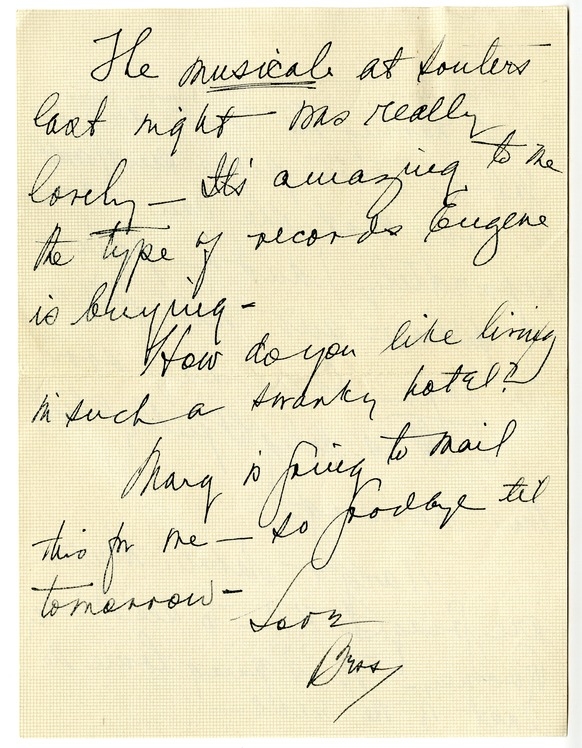 The musicale at Souters
last night was really
lovely — It's amazing to me
the type of records Eugene
is buying -
How do you like living
in such a swanky hotel?
Marg is going to mail
this for me — so goodbye til
tomorrow -
Love